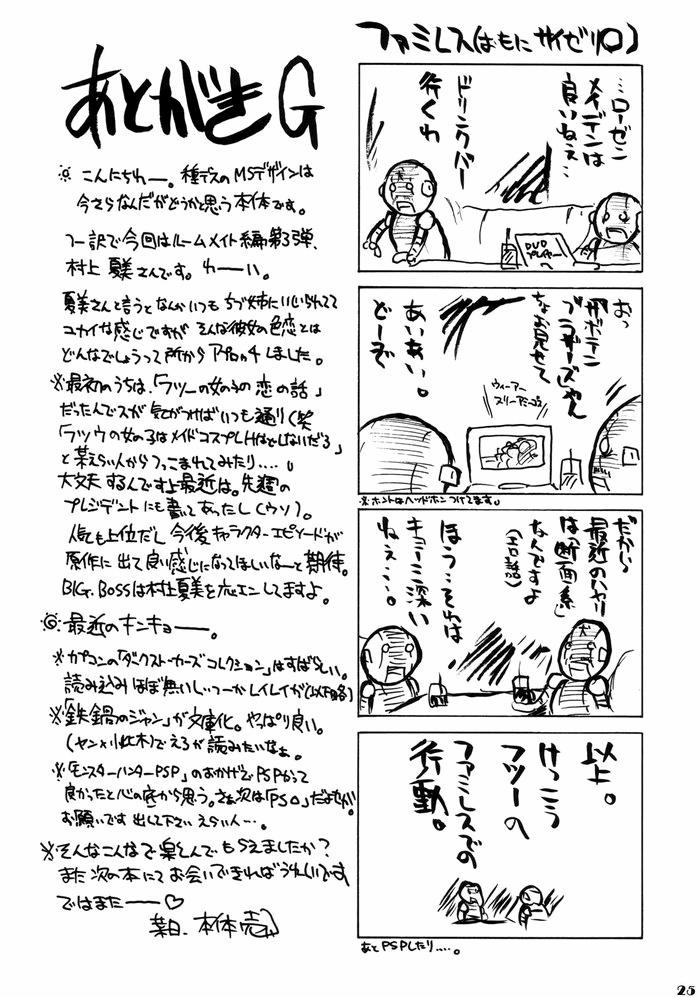 あとがきG
こんにちわー。種デスのMSデザインは
今さらなんだがどうか思う本体です。
つー訳で今回はルームメイト編第3弾、
村上夏美さんです。わーい。
夏美さんと言うとなんかいつもちづ姉にいじられてて
ユカイな感じですがそんな彼女の色恋とは
どんなでしょうって所からアプローチしました。
※最初のうちは、「フツーの女の子の恋の話」
だったんでスが気がつけばいつも通り(笑
「フツウの女の子はメイドコスプレHはとしないだろ」
と某えらい人からつっこまれてみたり‥‥。
大丈夫するんですよ最近は。先週の
プレジデントにも書いてあったし(ウソ)。
人気も上位だし今後キャラクターエピソードが
原作に出て良い感じになってほしいなーと期待。
BIG.BOSSは村上夏美を応エンしてますよ。
最近のキンキョー。
※カプコンの「ダークストーカーズコレクション」はすばらしい。
読み込みほぼ無いしっつーかレイレイが(以下略)
※「鉄鍋のジャン」が文庫化。やっぱり良い。
(ヤン×小此木)でえろが読みたいなぁ。
※「モンスターハンターPSP」のおかげでPSPかって
良かったと心の底から思う。さぁ次は「PSO」だよせがい
お願いです出して下さいえらい人…。
※そんなこんなで楽しんでもらえましたか?
また次の本にてお会いできればうれしいです
ではまたー♡
某日、本体売
ファミレス(おもにサイゼリ○)
…ローゼン
メイデンは
良いねぇ…
ドリンクバー
行くわ
DVD
プレイヤーへ
おっ
「サボテン
ブラザーズ」やん
ちょお見せて
あいあい。
どーぞ
ウィーアー
スリーアミーゴス
※ホントはヘッドホンつけてます。
だから
最近のハヤリ
は「断面系」
なんですよ
(エロ話)
ほう‥それは
キョーミ深い
ねぇ…。
以上。
けっこう
フツーの
ファミレスでの
行動。
あとPSPしたり‥‥。
25